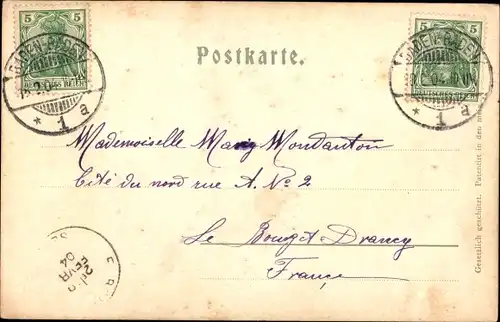 5 5
DEUTSCHES REICH
BADEN-BADEN
* 1 a
Postkarte.
5 5
DEUTSCHES REICH
BADEN-BADEN
* 1 a
Mademoiselle Marg Mondanton
Cité du nord rue A. No 2
Le Bourget Drancy
France
FEVR
04
Gesetzlich geschützt. Patentirt in den